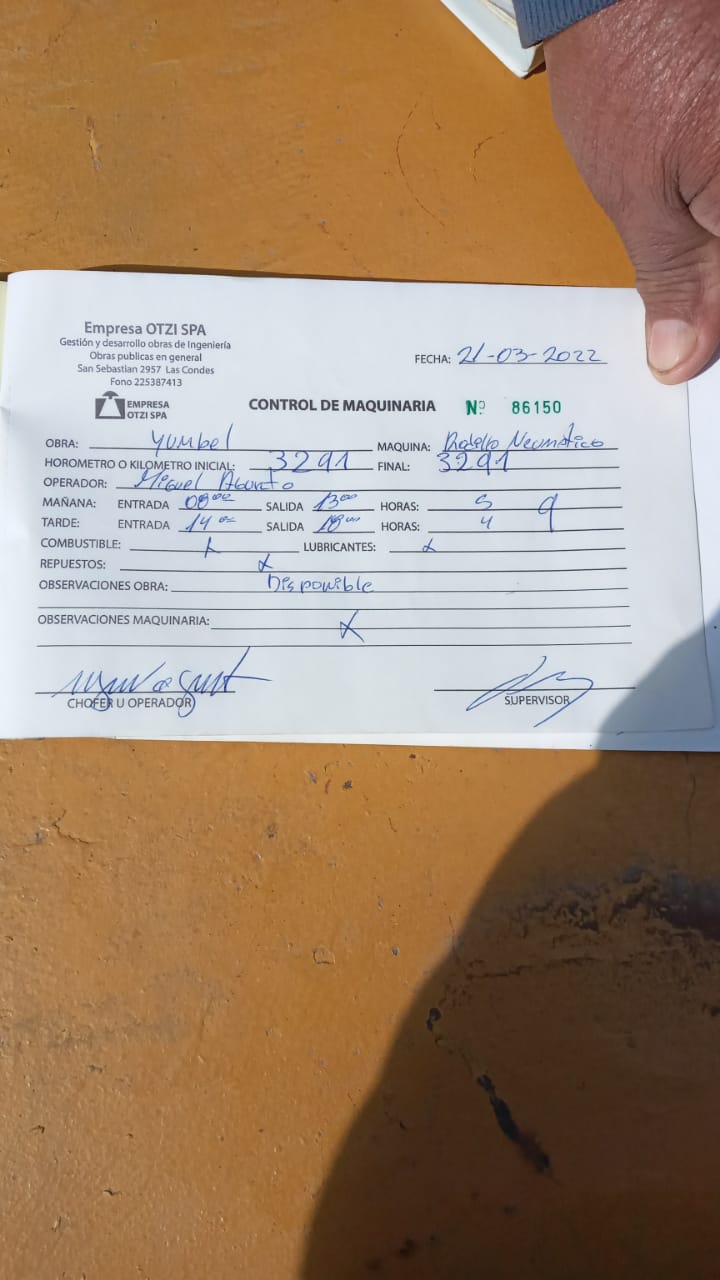 Empresa OTZI SPA
Gestión y desarrollo obras de Ingeniería
Obras publicas en general
San Sebastian 2957 Las Condes
Fono 225387413
FECHA: 21-03-2022
EMPRESA
OTZI SPA
CONTROL DE MAQUINARIA Nº 86150
OBRA: Yumbel MAQUINA: Rodillo Neumático
HOROMETRO O KILOMETRO INICIAL: 3291 FINAL: 3291
OPERADOR: Miguel Aburto
MAÑANA: ENTRADA 08:00 SALIDA 13:00 HORAS: 5 9
TARDE: ENTRADA 14:00 SALIDA 18:00 HORAS: 4
COMBUSTIBLE: LUBRICANTES:
REPUESTOS:
OBSERVACIONES OBRA: Disponible
OBSERVACIONES MAQUINARIA:
CHOFER U OPERADOR SUPERVISOR